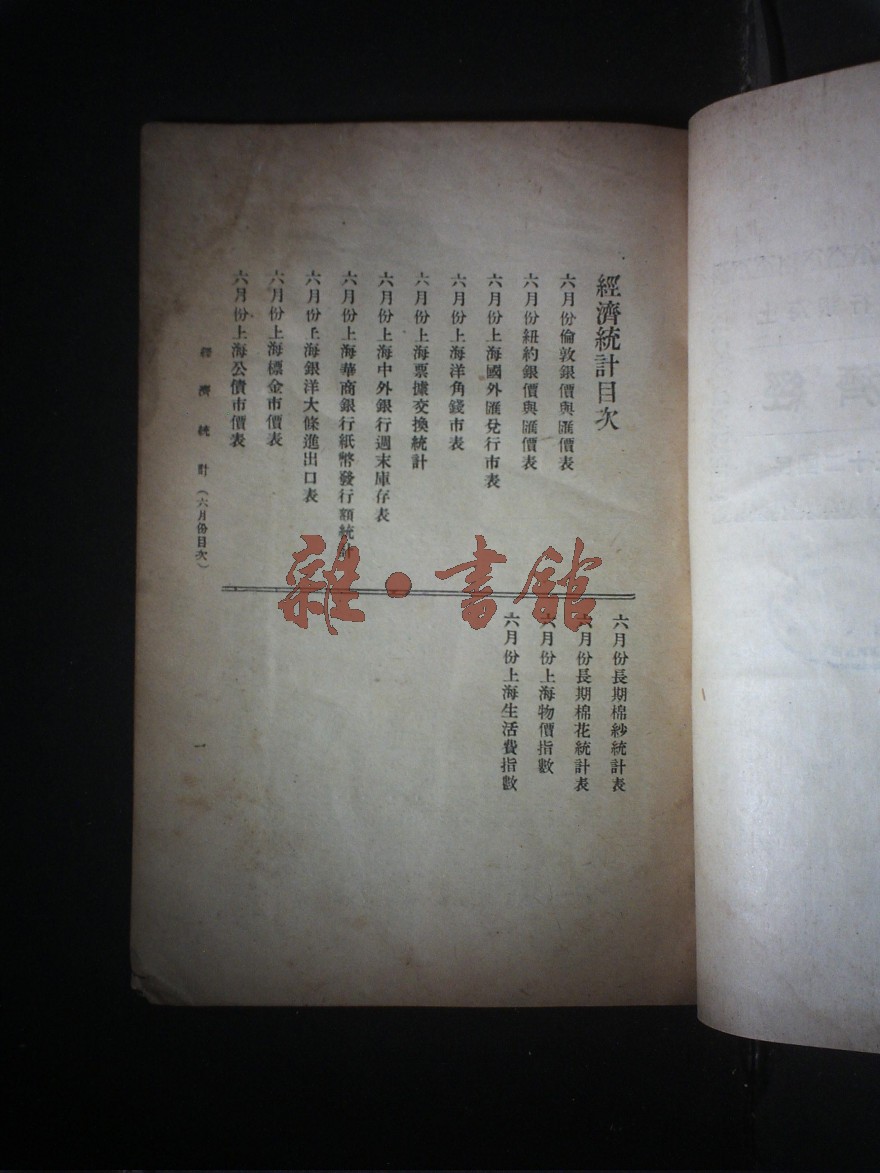 經濟統計目次
六月份倫敦銀價與匯價表
六月份紐約銀價與匯價表
六月份上海國外匯兌行市表
六月份上海洋角錢市表
六月份上海票據交換統計
六月份上海中外銀行週末庫存表
六月份上海華商銀行紙幣發行額統計
六月份上海銀洋大條進出口表
六月份上海標金市價表
六月份上海公債市價表
六月份長期棉紗統計表
六月份長期棉花統計表
六月份上海物價指數
六月份上海生活費指數
經濟統計（六月份目次）
一
雜·書館